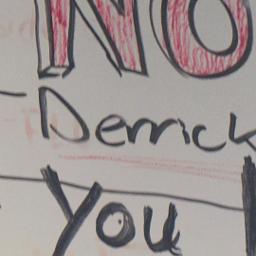 NO
Derrick
you